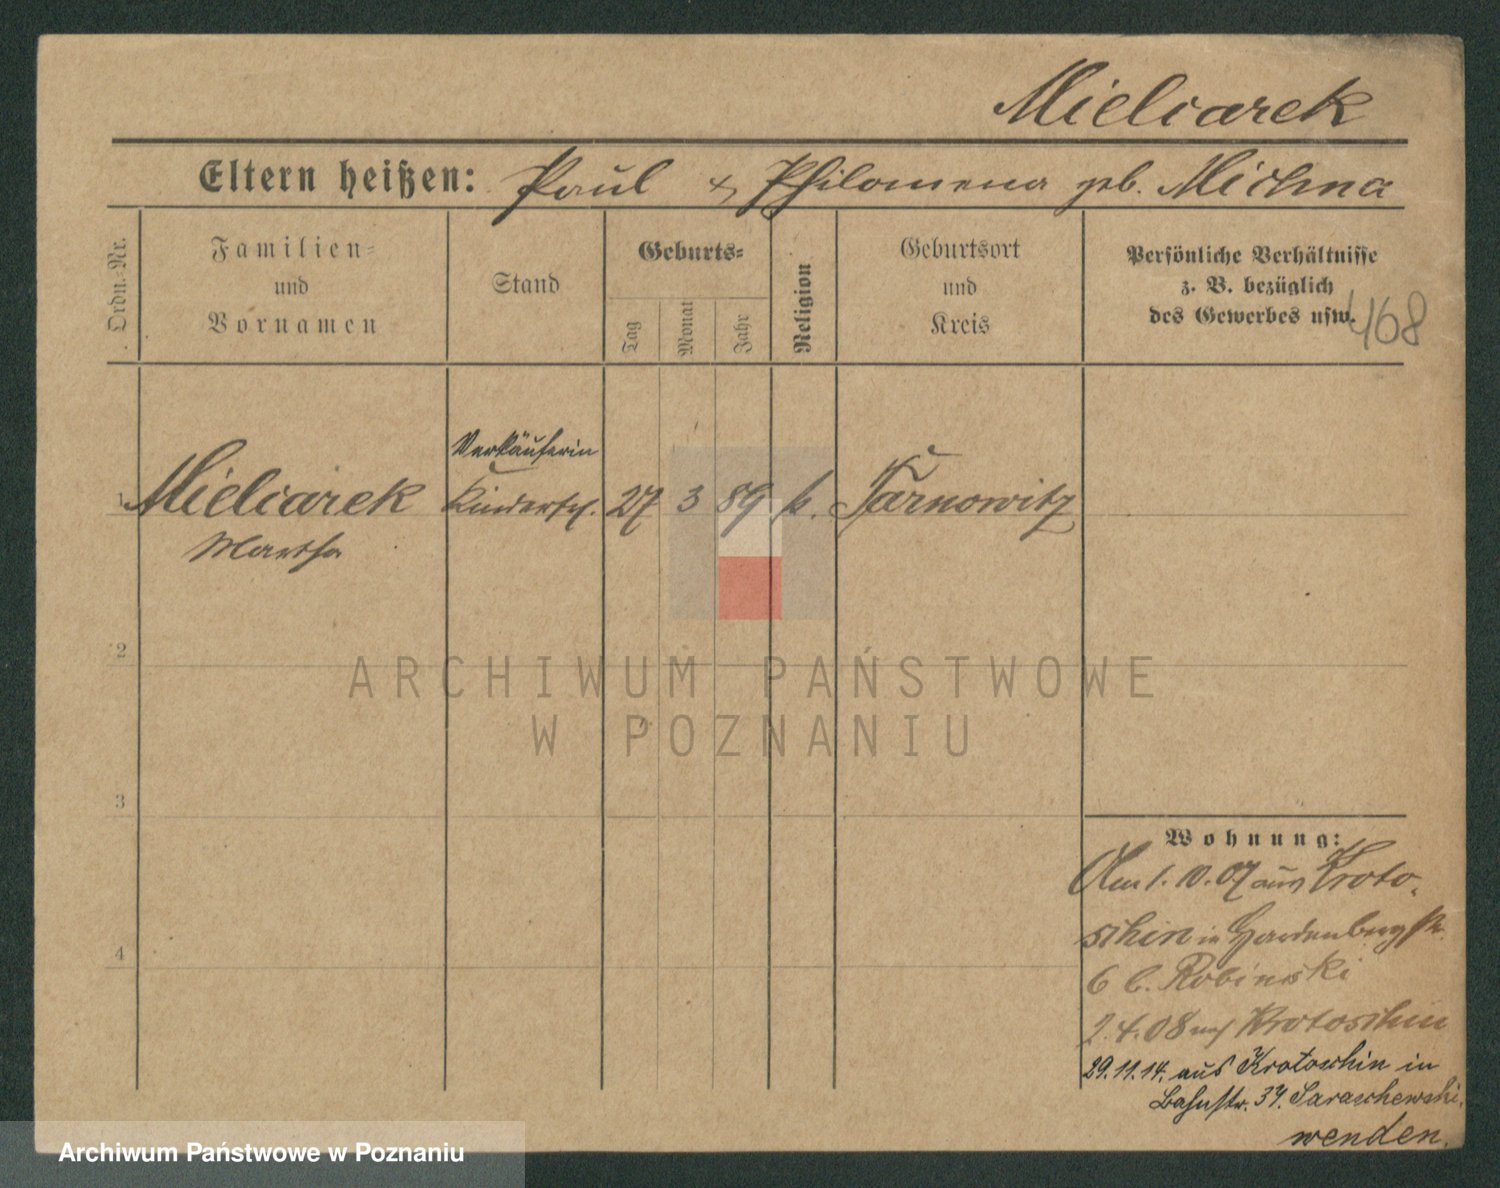 Mielcarek
Eltern heißen: Paul & Philomena geb. Michna
Ordn.-Nr.
Familien-
und
Vornamen
Stand
Geburts-
Tag
Monat
Jahr
Religion
Geburtsort
und
Kreis
Persönliche Verhältnisse
z. B. bezüglich
des Gewerbes usw.
468
Verkäuferin
1 Mielcarek Kinderfrl. 27 3 89 k. Tarnowitz
Martha
2
3
4
Wohnung:
Am 1. 10. 07 aus Kroto-
schin in Hardenbergstr.
6 b. Robinski
2.4.08 nach Krotoschin
29.11.14. aus Krotoschin in
Bahnstr. 37. Saraschewski.
wenden.
ARCHIWUM PAŃSTWOWE
W POZNANIU
Archiwum Państwowe w Poznaniu